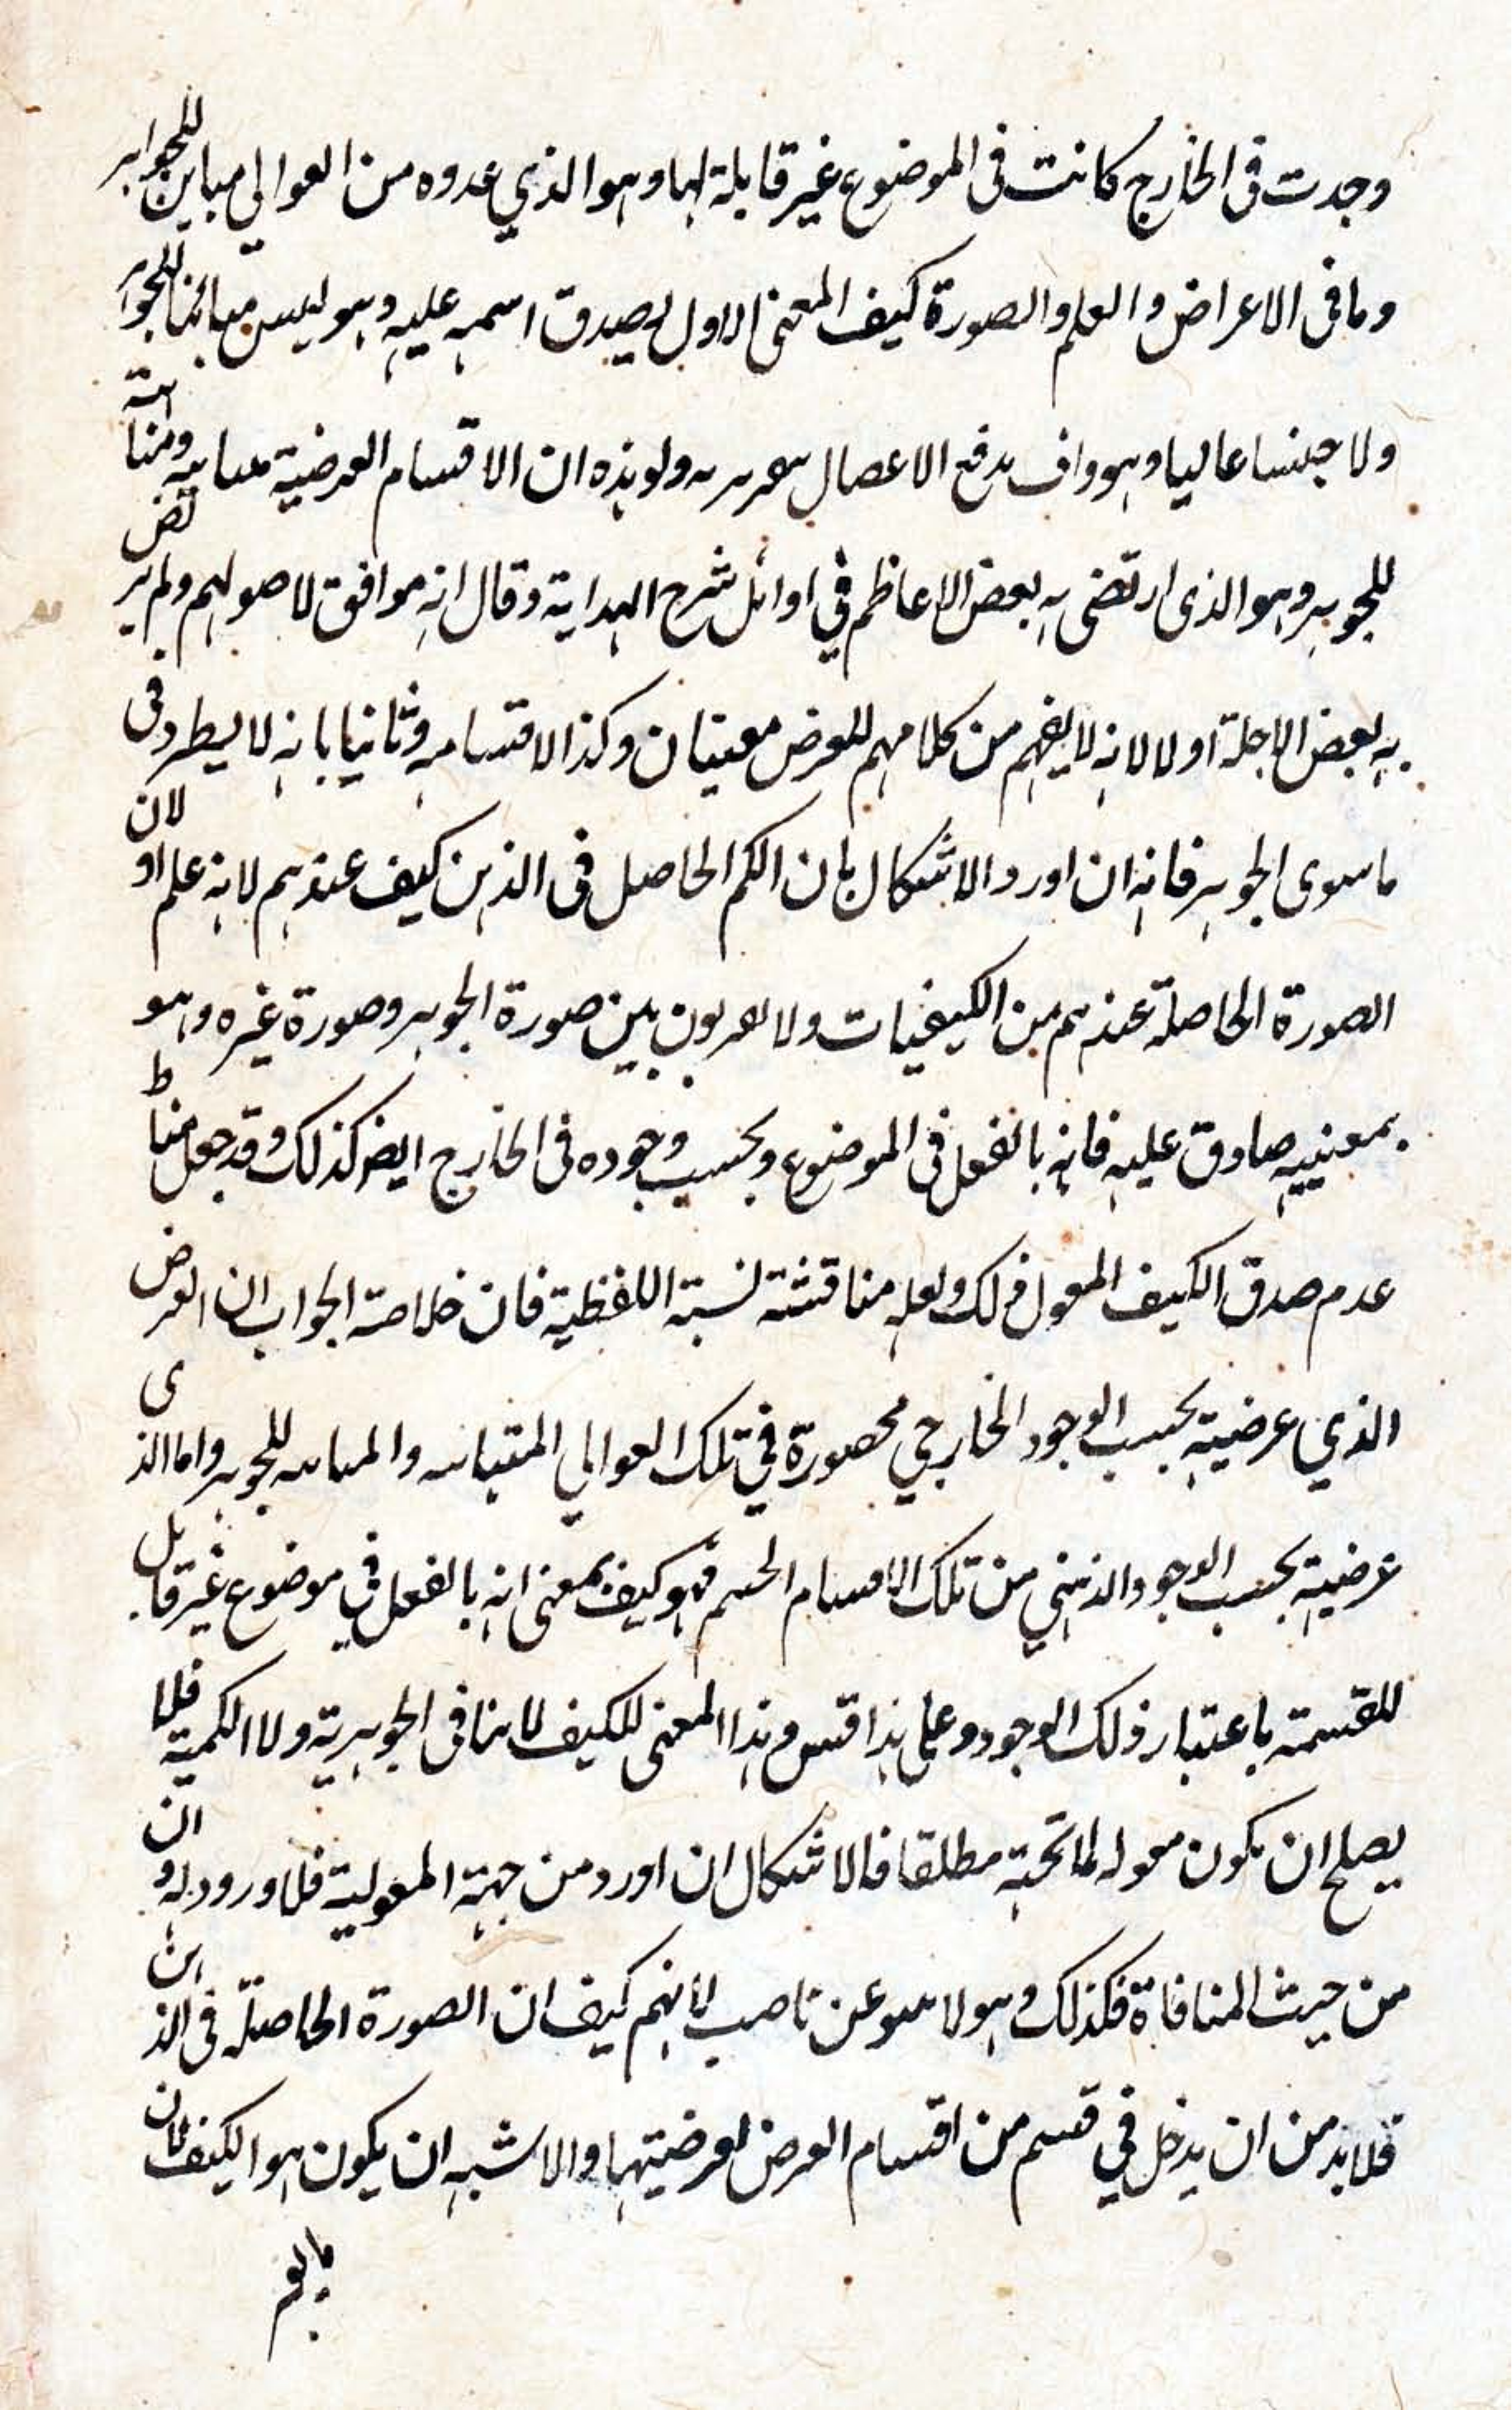 وجدت فى الخارج كانت فى الموضوع غير قابلة لها وهو الذي عدوه من العوالي مباين للجواهر
وما فى الاعراض والعلم والصورة كيف المعنى الاول يصدق اسمه عليه وهو ليس مبائنا للجواهر
ولا جنسا عاليا وهو واف بدفع الاعضال ان الاقسام العرضية ومنا
للجوهر وهو الذى ارتضى به بعض الاعاظم في اوائل شرح الهداية وقال انه موافق لاصولهم ولم يرتض
به بعض الاجلة اولا لانه لا يفهم من كلامهم للعرض معنيان وكذا لاقسامه وثانيا بانه لا يطرد فى
ما سوى الجوهر فانه ان اورد الاشكال بان الكم الحاصل فى الذهن كيف عندهم لانه علم او لان
الصورة الحاصلة عندهم من الكيفيات ولا بين صورة الجوهر وصورة غيره وهو
بمعنييه صادق عليه فانه بالفعل فى الموضوع وبحسب وجوده فى الخارج ايضا كذلك وقد جعل مناط
عدم صدق الكيف المقول ذلك ولعله مناقشته لسبة اللفظية فان خلاصة الجواب ان العرض
الذي عرضيته بحسب الوجود الخارجي محصورة في تلك العوالي المتباينه والمباينه للجوهر واما الذى
عرضيته بحسب الوجود الذهني من تلك الاقسام فهو كيف بمعنى انه بالفعل في موضوع غير قابل
للقسمة باعتبار ذلك الوجود وعلى هذا قس وهذا المعنى للكيف لا ينافى الجوهرية ولا الكمية فلا
يصلح ان يكون مقوله لما تحته مطلقا فالاشكال ان اورد من جهة المقولية فلا ورود له وان
من حيث المنافاة فكذلك وهو لا عن لانهم كيف ان الصورة الحاصلة فى الذهن
فلا بد من ان يدخل في قسم من اقسام العرض لعرضيتها والاشبه ان يكون هو الكيف فان